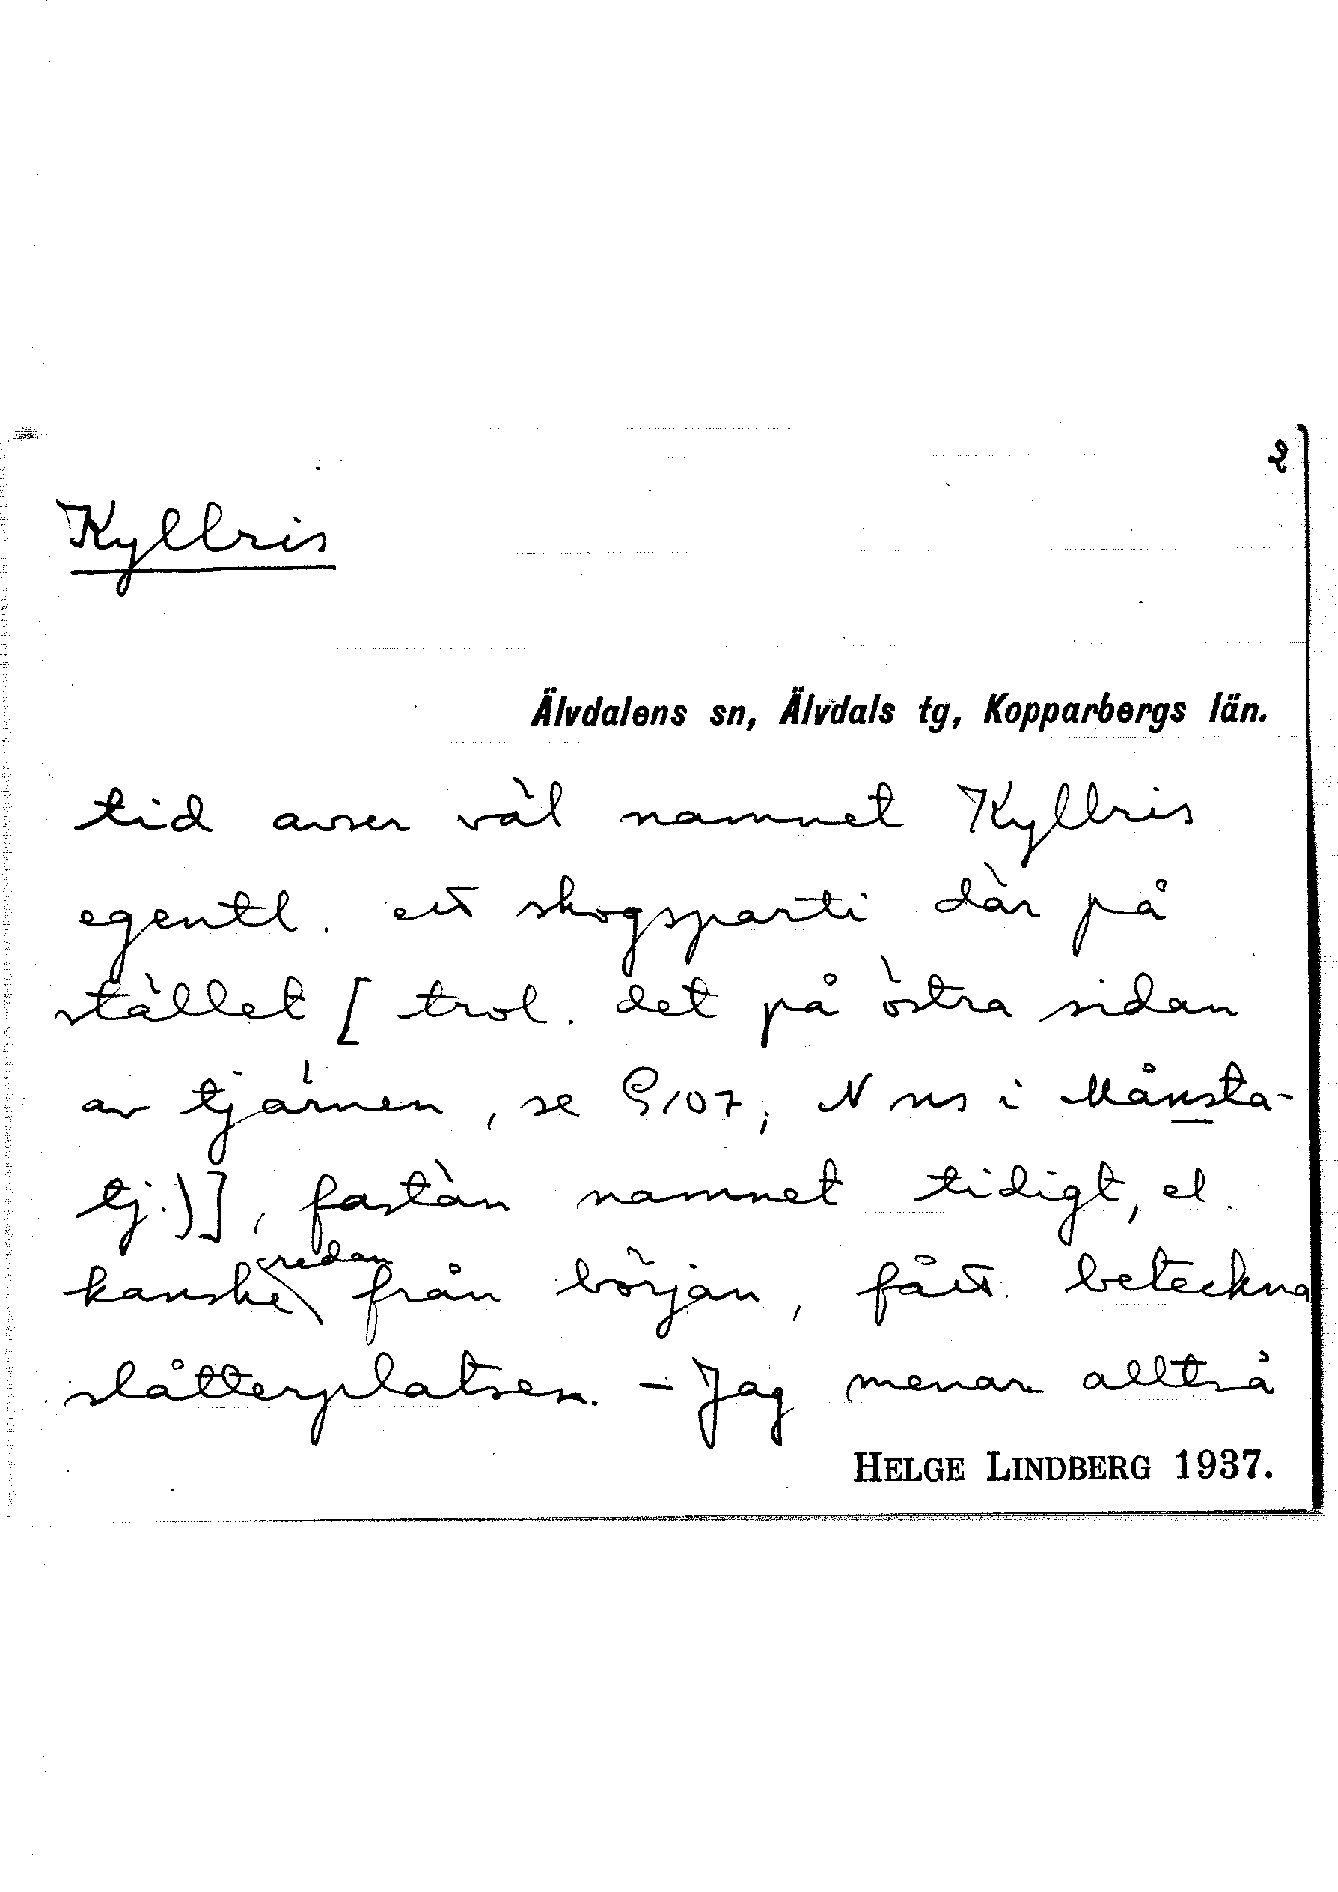 2
Kyllris
Älvdalens sn, Älvdals tg, Kopparbergs län.
tid avser väl namnet Kyllris
egentl. ett skogsparti där på
stället [ trol. det på östra sidan
av tjärnen, se G107; N ns i Månsta-
tj.)], fastän namnet tidigt, el.
kanske redan från början, fått beteckna
slåtterplatsen. - Jag menar alltså
HELGE LINDBERG 1937.